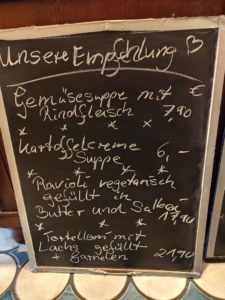 Unsere Empfehlung
€
Gemüsesuppe mit
Rindfleisch 7,90
* * *
Kartoffelcreme
Suppe 6,-
* * *
Ravioli vegetarisch
gefüllt in
Butter und Salbei
17,90
* * *
Tortelloni mit
Lachs gefüllt
+ Garnelen 21,90